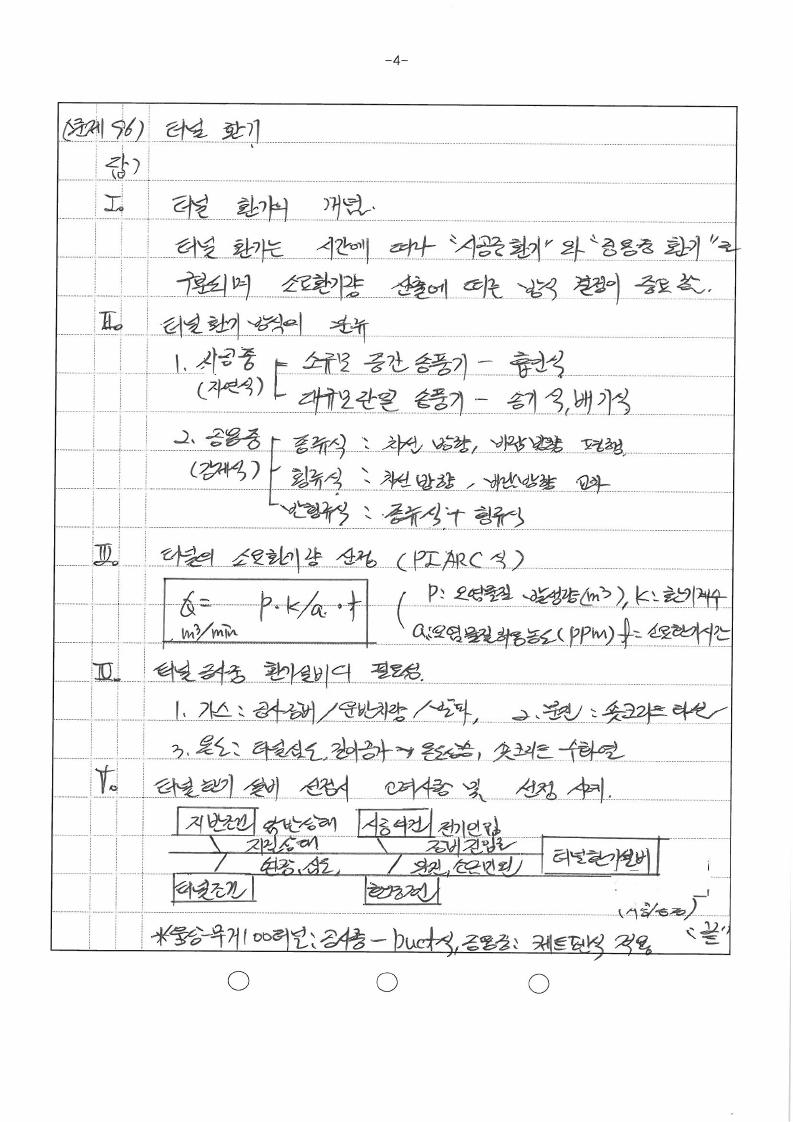 -4-
(문제 96) 터널 환기
답)
I. 터널 환기의 개념.
터널 환기는 시간에 따라 "시공중 환기" 와 "공용중 환기"로
구분되며 소요환기량 산출에 따른 방식 결정이 중요함.
II. 터널 환기 방식의 분류
1. 시공중 ┌ 소규모 공간 송풍기 - 흡인식
(자연식) └ 대규모 송풍기 - 송기식, 배기식
2. 공용중 ┌ 종류식 : 차선 방향, 바람 방향 평행
(강제식) ├ 횡류식 : 차선 방향, 바람방향 교차
└ 반횡류식 : 종류식 + 횡류식
III. 터널의 소요환기량 산정 (PIARC 식)
Q = P·k/a·t ( P: 오염물질 발생량(m³), K: 환기계수
m³/min a: 오염물질 허용농도(ppm) t = 소요환기시간
IV. 터널 공사중 환기설비의 필요성.
1. 가스 : 공사장비/운반차량/발파, 2. 분진 : 숏크리트 타설
3. 온도 : 터널심도, 깊이증가 → 온도상승, 숏크리트 수화열
V. 터널 환기 설비 선정시 고려사항 및 선정 사례.
지반조건 암반상태 시공여건 전기인입
지질상태 장비진입로
연장, 심도, 분진, 소음민원 터널환기설비
터널조건 환경조건
(시공/공용)
*울산-무거 100터널: 공사중 - Duct식, 공용중: 제트팬식 적용 "끝"